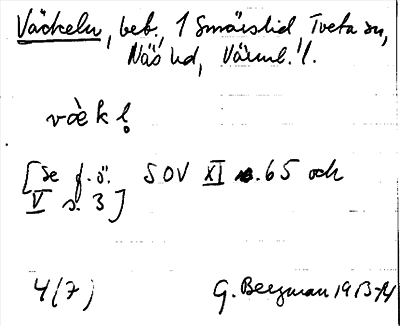 Väckeln, beb., i Smärslid, Tveta sn,
Näs hd, Värml. l.
vàkl
[Se f. ö. SOV XI s. 65 och
V s. 3]
4(7)
G. Bergman 1913-14